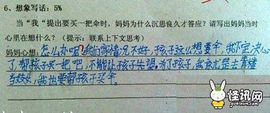 6、想象写话：5%
当“我”提出要买一把伞时，妈妈为什么沉思良久才答应？请写出妈妈当时
心里在想什么？（提示：联系上下文思考）
妈妈心想：怎么办呢？我们家情况不好，孩子这么想要伞，我下定决心
了，帮孩子买一把吧，不能让孩子失望，为了孩子，我
我也要帮孩子买伞。
怪讯网